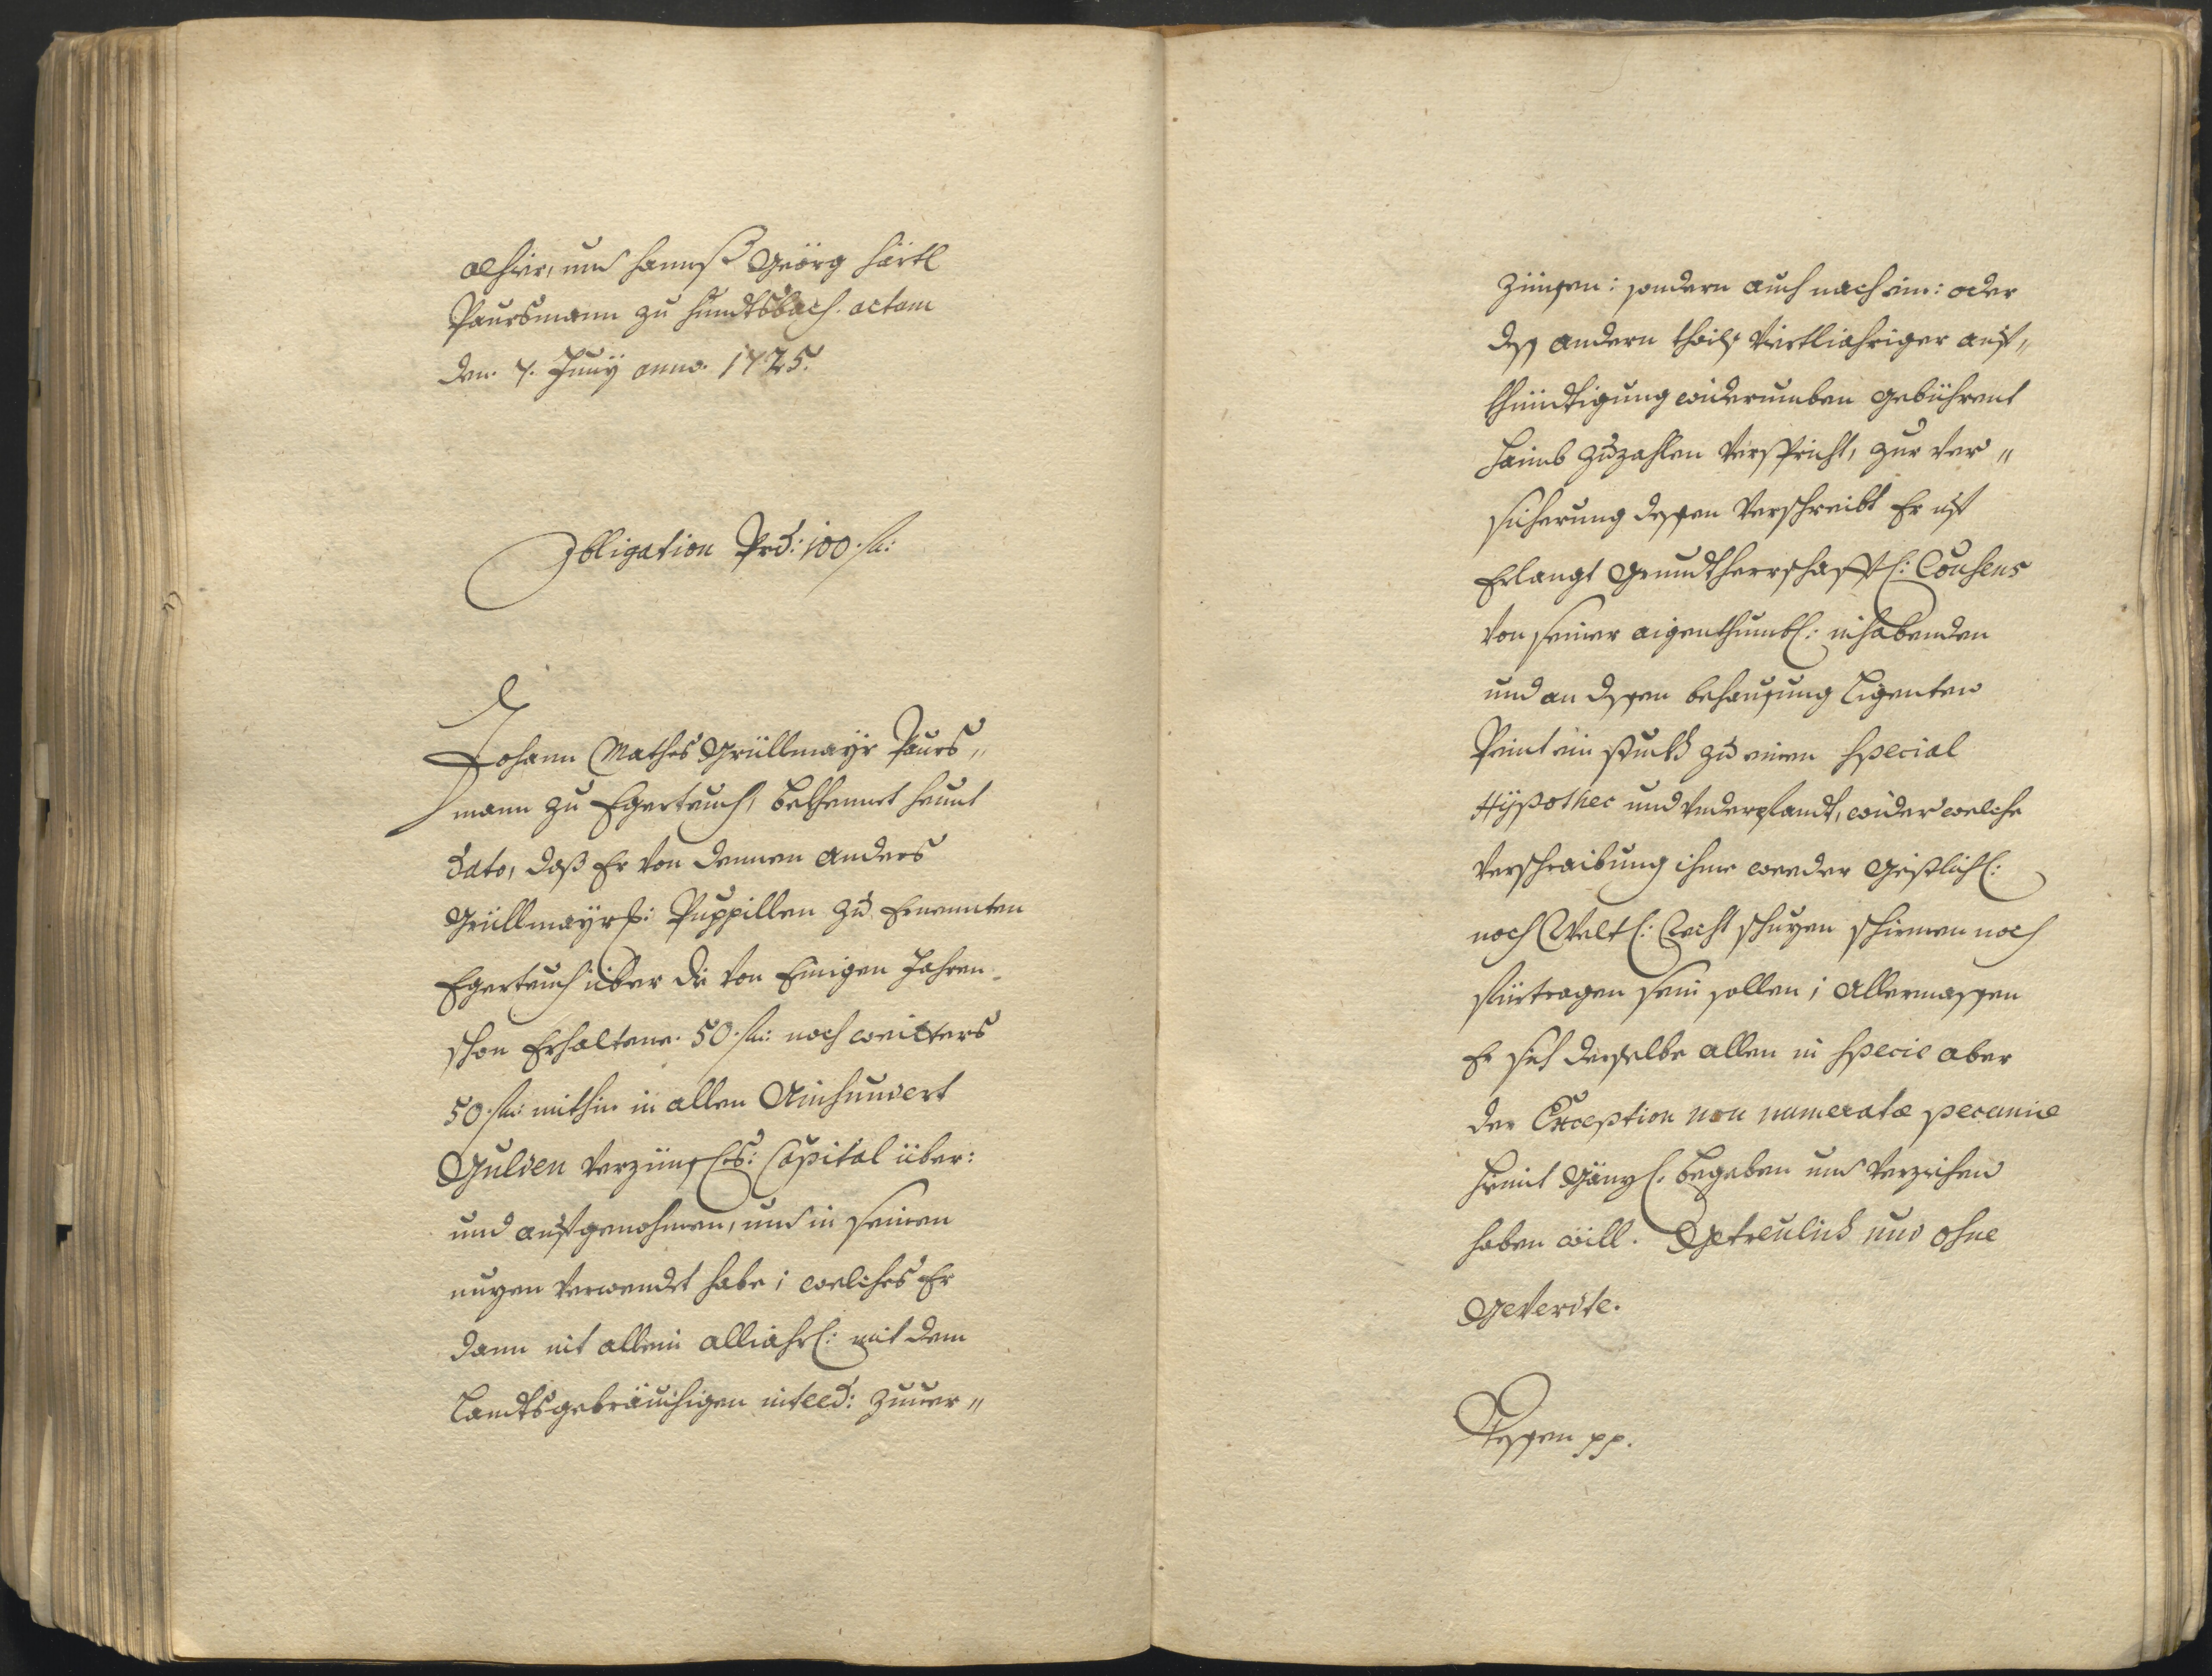 alhier, und Hannß Geörg Härtl
Paursmann zu Hundtsbach. actum
den. 7. Juny anno. 1725.
Obligation Prd: 100. fl:
Johann Mathes Grüllmayr Paurs„
mann zu Egerteuch, bekhennet heunt
dato, daß Er von dennen Anders
Grüllmayrs: Puppillen zu ernennten
Egerteuch über die von Einigen Jahren
schon Erhaltene. 50. fl: noch weitters
50. fl: mithin in allen Ainhundert
Gulden verzünsl: Capital über:
und aufgenohmen, und in seinen
nuzen verwendet habe; welches Er
dann nit allein alljährl: mit dem
Landtsgebräuchigen interd: zuver„
zünsen: sondern auch nach ein: oder
deß andern thails viertljahriger auf„
khündtigung widerumben gebührent
haimb zuzahlen verspricht, zur ver„
sicherung dessen verschreibt Er uf
Erlangt Grundtherrschafftl: Consens
von seiner aigenthumbl: inhabenden
und an dessen behausung ligenten
Peint ein stuckh zu einen special
Hÿpothec und underpfandt, wider welche
verschreibung ihme weeder Geistlichl:
noch Weltl: Recht schuzen schirmen noch
fürtragen sein sollen; Allermassen
Er sich derselbe allen in specie aber
der Exception non numeratæ pecuniæ
hiemit Gänzl: begeben und verzichen
haben will. Getreulich und ohne
Geverdte.
Dessen pp.